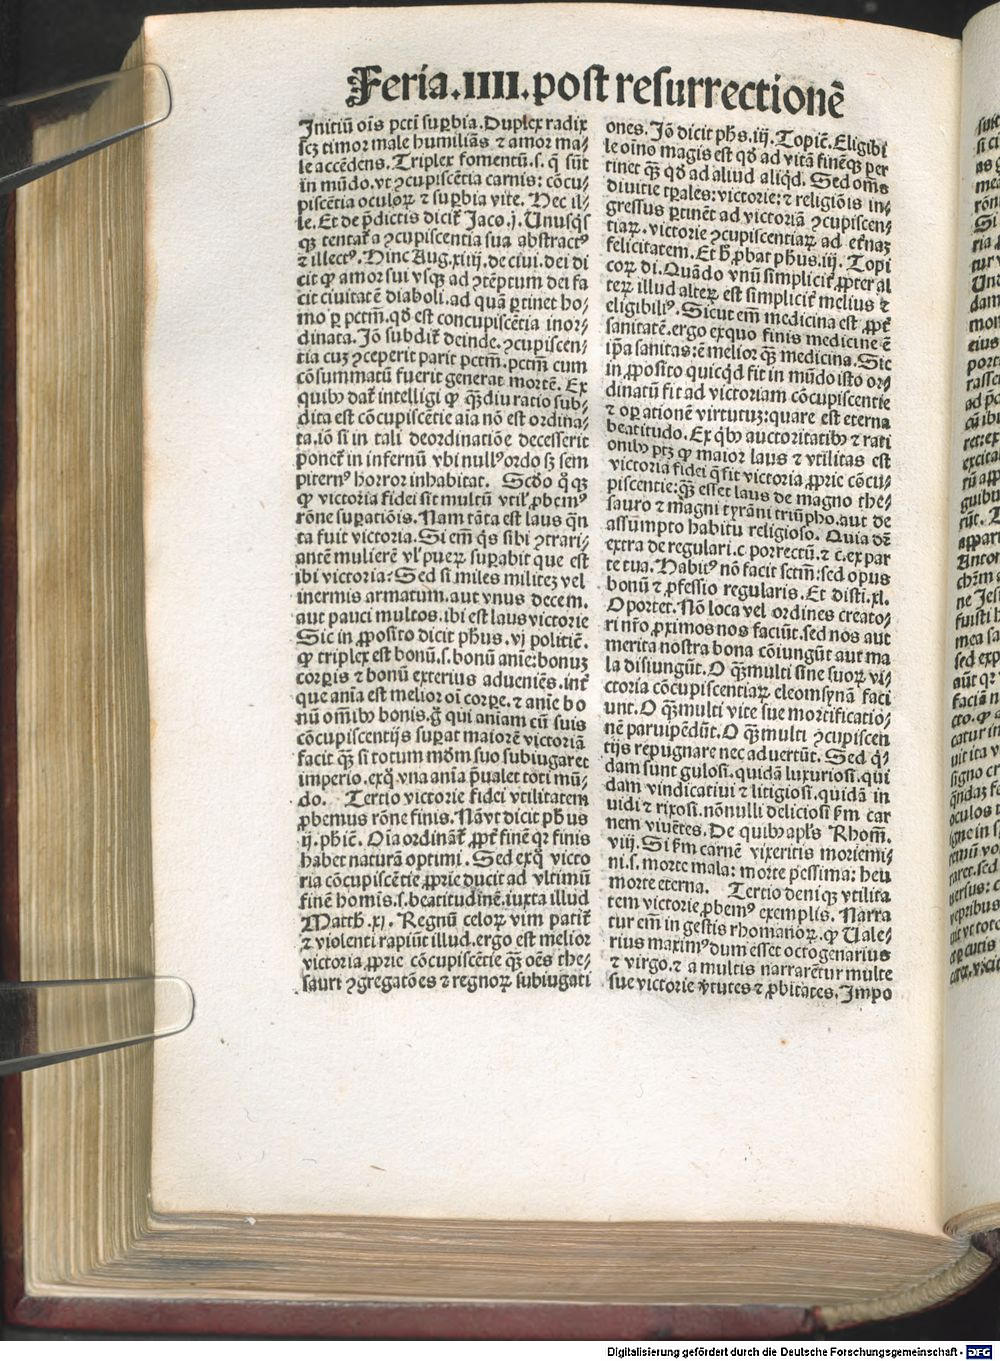 Feria.IIII.post resurrectionē
Initiū oīs pcti suꝑbia. Duplex radix
scꝫ timor male humiliās ⁊ amor ma⸗
le accēdens. Triplex fomentū.s. q̄ sūt
in mūdo. vt ꝯcupiscētia carnis: cōcu⸗
piscētia oculoꝝ ⁊ suꝑbia vite. Hec il⸗
le. Et de p̄dictis dicit̄ Jaco.j. Unusq̇s
qꝫ tentat̄ a ꝯcupiscentia sua abstractꝰ
⁊ illectꝰ. Hinc Aug.xiiij.de ciui.dei di
cit ꝙ amor sui vsqꝫ ad ꝯtēptum dei fa
cit ciuitatē diaboli.ad quā ꝑtinet ho⸗
mo ꝑ pctm̄.qď est concupiscētia inor⸗
dinata. Jō subdit̄ deinde.ꝯcupiscen⸗
tia cuꝫ ꝯceperit parit pctm̄.pctm̄ cum
cōsummatū fuerit generat mortē. Ex
quibꝰ dat̄ intelligi ꝙ qꝫdiu ratio sub⸗
dita est cōcupiscētie aīa nō est ordina⸗
ta.iō si in tali deordinatiōe decesserit
ponet̄ in infernū vbi nullꝰ ordo sꝫ sem
piternꝰ horror inhabitat. Scďo q̄ qꝫ
ꝙ victoria fidei sit multū vtilꝭ ꝓbemꝰ
rōne suꝑatiōis. Nam tāta est laus qn̄
ta fuit victoria. Si em̄ q̇s sibi ꝯtrari⸗
antē mulierē vl̓ pueꝝ suꝑabit que est
ibi victoria? Sed si miles militeꝫ vel
inermis armatum.aut vnus decem.
aut pauci multos.ibi est laus victorie
Sic in ꝓposito dicit ph̄us.vj politic̄.
ꝙ triplex est bonū.s.bonū anīe:bonuꝫ
corꝑis ⁊ bonū exterius adueniēs.int̄
que anīa est melior oī corꝑe.⁊ anīe bo
nū om̄ibꝰ bonis.g̊ qui aniam cū suis
cōcupiscentijs suꝑat maiorē victoriā
facit qꝫ si totum mōm suo subiugaret
imperio.exq̊ vna anīa p̄ualet toti mū⸗
do. Tertio victorie fidei vtilitatem
ꝓbemus rōne finis. Nāvt dicit ph̄us
ij.phic̄. Oīa ordinant̄ ꝓpt̄ finē qꝛ finis
habet naturā optimi. Sed exq̊ victo
ria cōcupiscētie ꝓprie ducit ad vltimū
finē homīs.s.beatitudinē.iuxta illud
Matth̄.xj. Regnū celoꝝ vim patit̄
⁊ violenti rapiūt illud.ergo est melior
victoria ꝓprie cōcupiscētie qꝫ oēs the⸗
sauri ꝯgregatōes ⁊ regnoꝝ subiugati
ones. Jō dicit ph̄s.iij.Topic̄.Eligibi
le oīno magis est qď ad vitā finēqꝫ per
tinet qꝫ qď ad aliud aliqď. Sed om̄s
diuitie tꝑales:victorie:⁊ religiōis in⸗
gressus ꝑtinēt ad victoriā ꝯcupiscen⸗
tiaꝝ.victorie ꝯcupiscentiaꝝ ad et̄naꝫ
felicitatem. Et h̄ ꝓbat ph̄us.iij. Topi
coꝝ di. Quādo vnū simplicit̄ ꝓpter al
teꝝ illud alteꝝ est simplicit̄ melius ⁊
eligibiliꝰ. Sicut em̄ medicina est ꝓpt̄
sanitatē.ergo exquo finis medicine ē
ip̄a sanitas:ē melior qꝫ medicina. Sic
in ꝓposito quicq̇d fit in mūdo isto or⸗
dinatū fit ad victoriam cōcupiscentie
⁊ oꝑationē virtutuꝫ:quare est eterna
beatitudo. Ex q̇bꝰ auctoritatibꝰ ⁊ rati
onibꝰ ptꝫ ꝙ maior laus ⁊ vtilitas est
victoria fidei q̄ fit victoria ꝓprie cōcu⸗
piscentie:qꝫ esset laus de magno the⸗
sauro ⁊ magni tyrāni triūpho.aut de
assumpto habitu religioso. Quia dr̄
extra de regulari.c porrectū.⁊ c.ex par
te tua. Habitꝰ nō facit sctm̄:sed opus
bonū ⁊ ꝓfessio regularis. Et disti.xl.
Oportet. Nō loca vel ordines creato⸗
ri nr̄o ꝓximos nos faciūt.sed nos aut
merita nostra bona cōiungūt aut ma
la disiungūt. O qꝫmulti sine suoꝝ vi⸗
ctoria cōcupiscentiaꝝ eleomsynā faci
unt. O qꝫmulti vite sue mortificatio⸗
nē paruipēdūt. O qꝫmulti ꝯcupiscen
tijs repugnare nec aduertūt. Sed q̇⸗
dam sunt gulosi.quidā luxuriosi.qui
dam vindicatiui ⁊ litigiosi.quidā in
uidi ⁊ rixosi.nōnulli deliciosi fm̄ car
nem viuētes. De quibꝰ apl̄s Rhom̄.
viij. Si fm̄ carnē vixeritis moriemi⸗
ni.s.morte mala: morte pessima: heu
morte eterna. Tertio deniqꝫ vtilita
tem victorie ꝓbemꝰ exemplis. Narra
tur em̄ in gestis rhomanoꝝ.ꝙ Uale⸗
rius maximꝰ dum esset octogenarius
⁊ virgo.⁊ a multis narrarētur multe
sue victorie v̓tutes ⁊ ꝓbitates. Impo
Digitalisierung gefördert durch die Deutsche Forschungsgemeinschaft - DFG